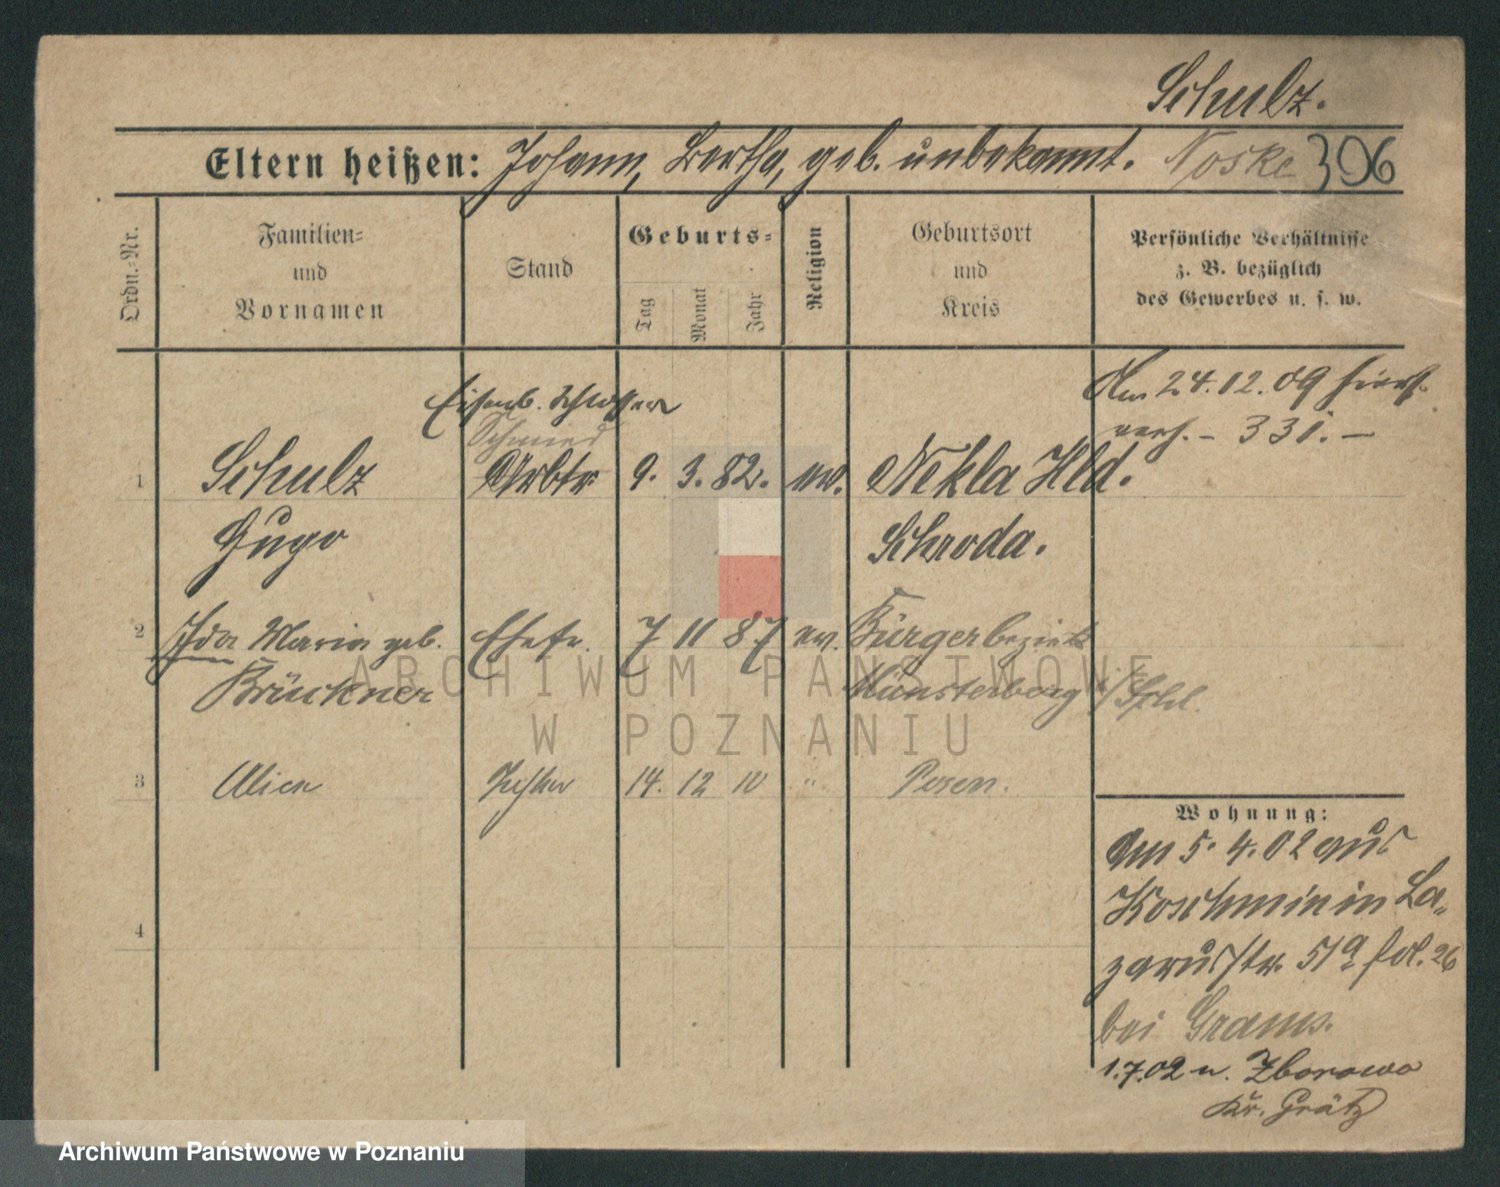 Schulz.
Eltern heißen: Johann, Bertha, geb. unbekannt. Noske 306
Ordn.-Nr.
Familien-
und
Vornamen
Stand
Geburts-
Tag
Monat
Jahr
Religion
Geburtsort
und
Kreis
Persönliche Verhältnisse
z. B. bezüglich
des Gewerbes u. s. w.
Am 24.12.09 hiers.
verh. – 331. –
Eisenb. Schlosser
Schmied
1 Schulz Arbtr 9. 3. 82. ev. Nekla Hld.
Hugo Schroda.
2 Ida Maria geb. Ehefr. 7 11 87 ev. Bürgerbezirk
Brückner Münsterberg i/Schl.
3 Alice Tochter 14. 12 10 " Posen.
4
Wohnung:
Am 5. 4. 02 aus
Koschmin in La-
zarusstr. 51a fol. 26
bei Grams.
1.7.02 n. Zborowo
Kr. Grätz
ARCHIWUM PAŃSTWOWE
W POZNANIU
Archiwum Państwowe w Poznaniu